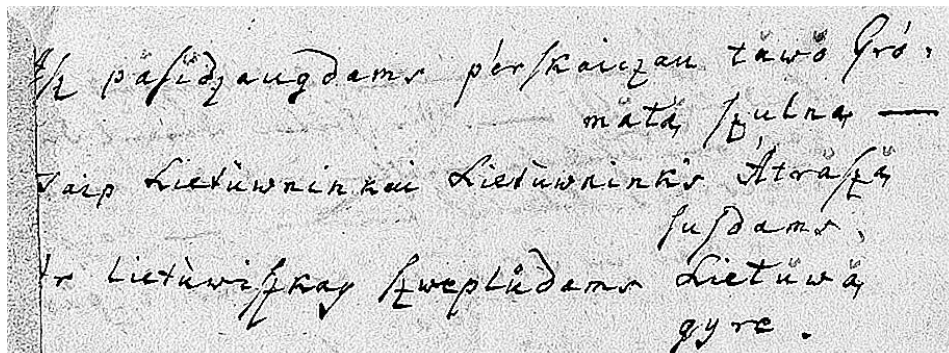 Aſz päſidżaugdams pėrſkaicżau täwö Gró,
mätą ſzulną —
Taip Lietùwninkai Lietùwninks Äträſzä
ſuſdams,
Ir lietùwiſzkay ſzweplûdams Lietùwą
gyre.